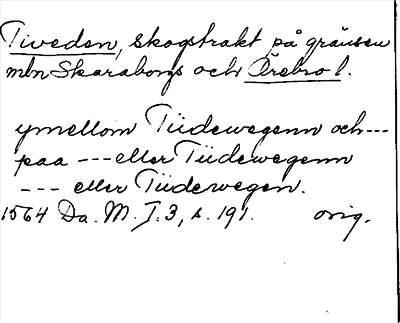 Tiveden, skogstrakt på gränsen
mln Skaraborgs och Örebro l.
ymellom Tiidewegenn och---
paa --- eller Tiidewegenn
--- eller Tiidewegen.
1564 Da. M. J. 3, s. 191. orig.